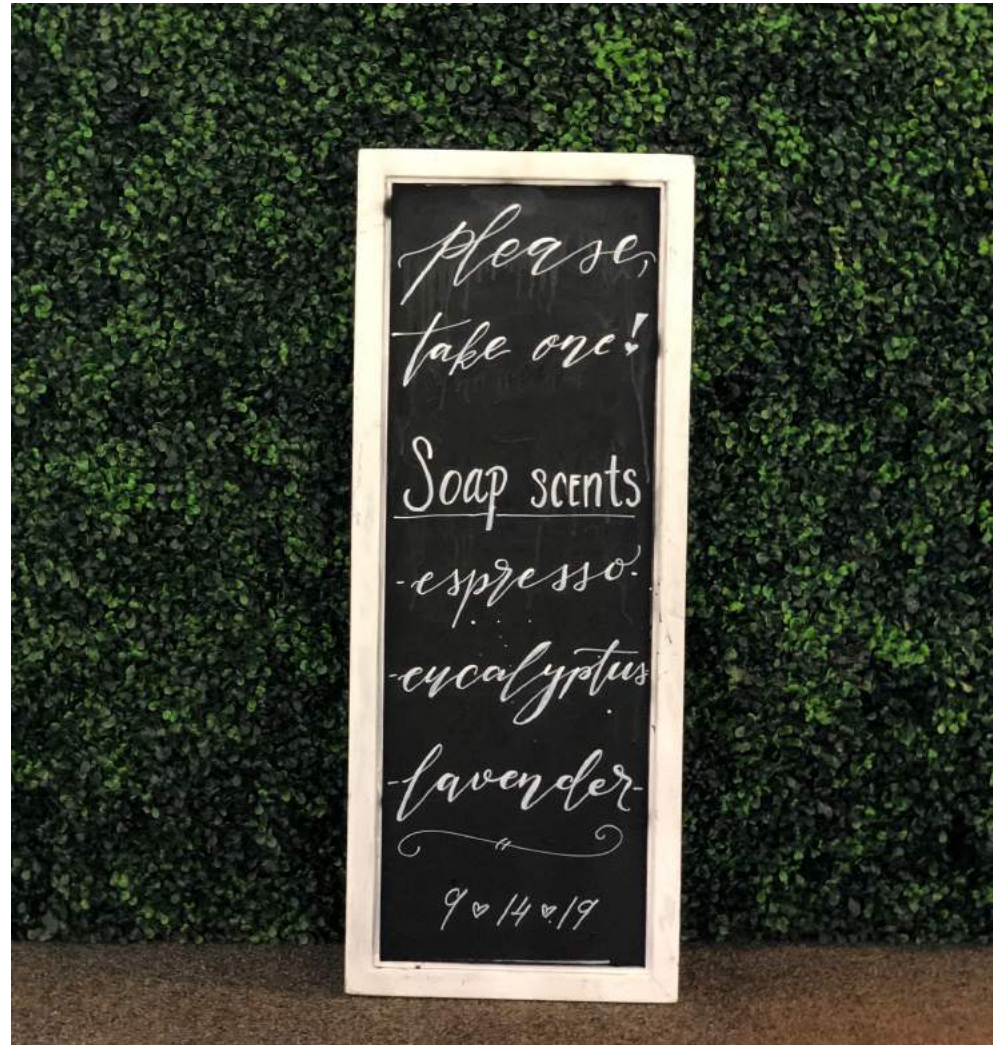 please,
take one!
Soap scents
-espresso-
-eucalyptus
-lavender-
9♡14♡19